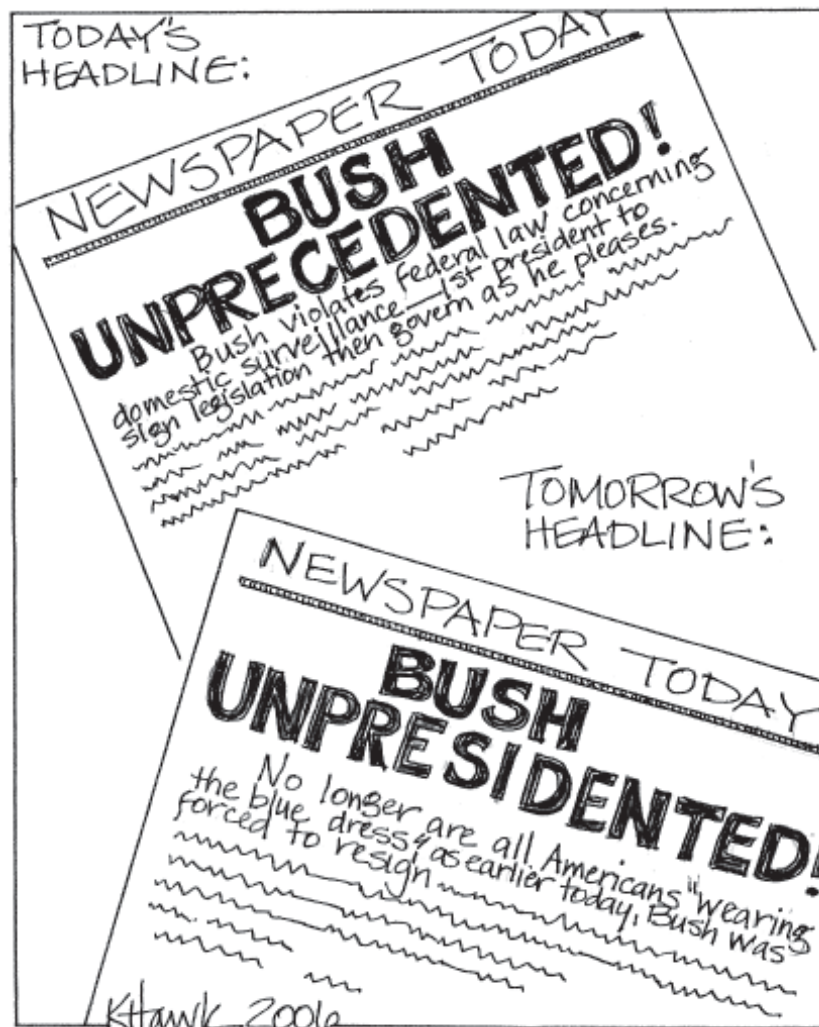 TODAY'S
HEADLINE:
NEWSPAPER TODAY
BUSH
UNPRECEDENTED!
Bush violates federal law concerning
domestic surveillance—1st president to
sign legislation then govern as he pleases.
TOMORROW'S
HEADLINE:
NEWSPAPER TODAY
BUSH
UNPRESIDENTED!
No longer are all Americans "wearing
the blue dress" as earlier today, Bush was
forced to resign
KHawk 2006